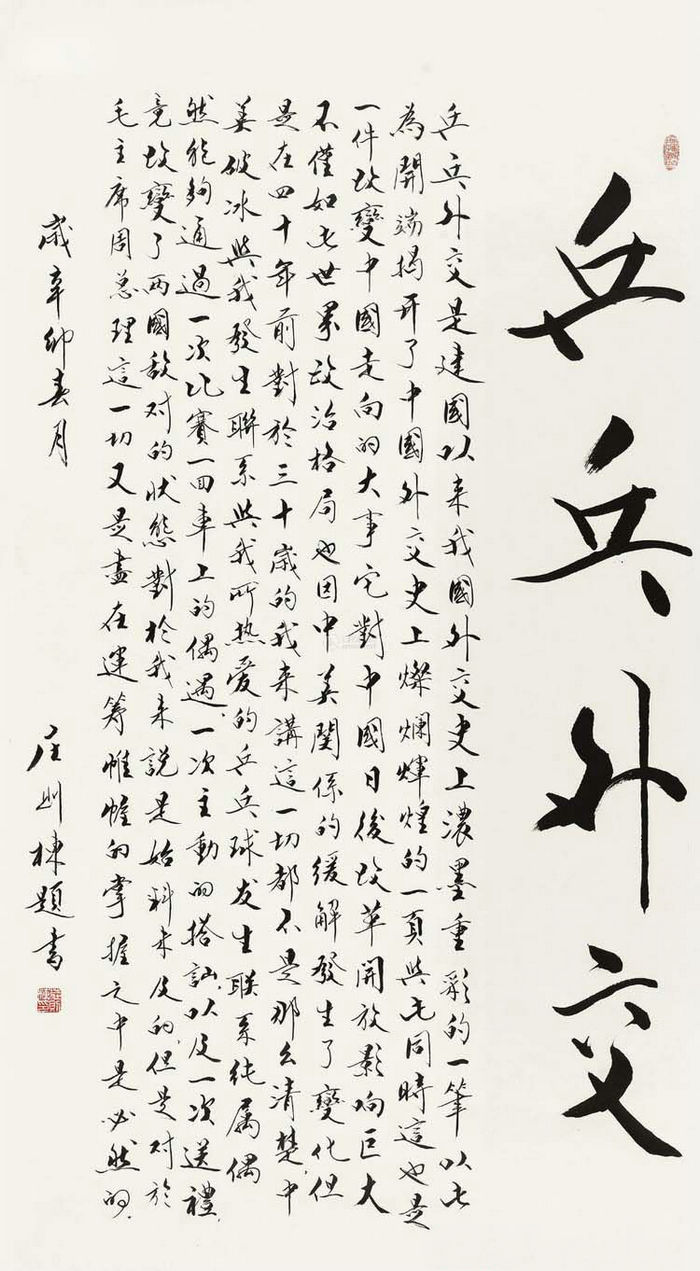 乒乓外交
乒乓外交是建國以来我國外交史上濃墨重彩的一筆以此
為開端揭开了中國外交史上燦爛煇煌的一頁與此同時這也是
一件改變中國走向的大事它對中國日後改革開放影响巨大
不僅如此世界政治格局也因中美関係的缓解發生了變化但
是在四十年前對於三十歲的我来講這一切都不是那么清楚中
美破冰與我發生聯系與我所热爱的乒乓球发生联系纯属偶
然能夠通過一次比賽一回車上的偶遇一次主動的搭訕以及一次送禮
竟改變了两國敌对的状態對於我来説是始料未及的但是对於
毛主席周总理這一切又是盡在運筹帷幄的掌握之中是必然的
歲辛卯春月
庄则棟題书